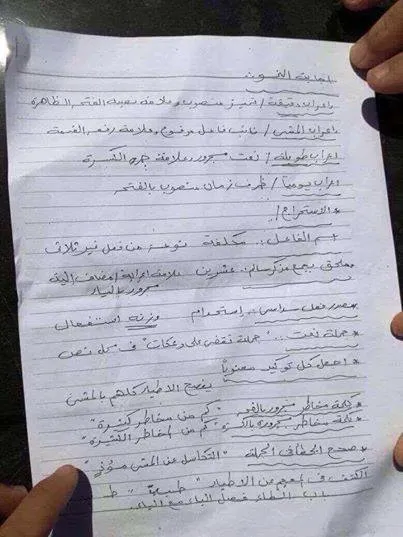 اجابة النحو
* اعراب دقيقة / تمييز منصوب وعلامة نصبه الفتحة الظاهرة
* اعراب المشى / نائب فاعل مرفوع وعلامة رفعه الضمة
اعراب طويلة / نعت مجرور وعلامة جره الكسرة
اعراب يومياً / ظرف زمان منصوب بالفتحة
* الاستخراج /
اسم الفاعل :. مكلفة نوعه من فعل غير ثلاثى
* ملحق بجمع مذكر سالم :. عشرين علامة اعرابه مضاف اليه
مجرور بالياء
* مصدر فعل سداسى :. استخدام وزنه استفعال
* جملة نعت :. " جملة تقضى على وعكات " فى محل نصب
* اجعل كل توكيد معنوياً
ينصح الاطباء كلهم بالمشى
* كلمة مخاطر مجرور بالفتحة " كم من مخاطر كثيرة "
* كلمة مخاطر مجرورة بالكسرة " كم من المخاطر الكثيرة "
* صحح الخطأ فى الجملة " التكاسل عن المشى مؤذٍ "
الكشف فى المعجم عن الاطباء " طبب " ط
باب الطاء فصل الباء مع الباء